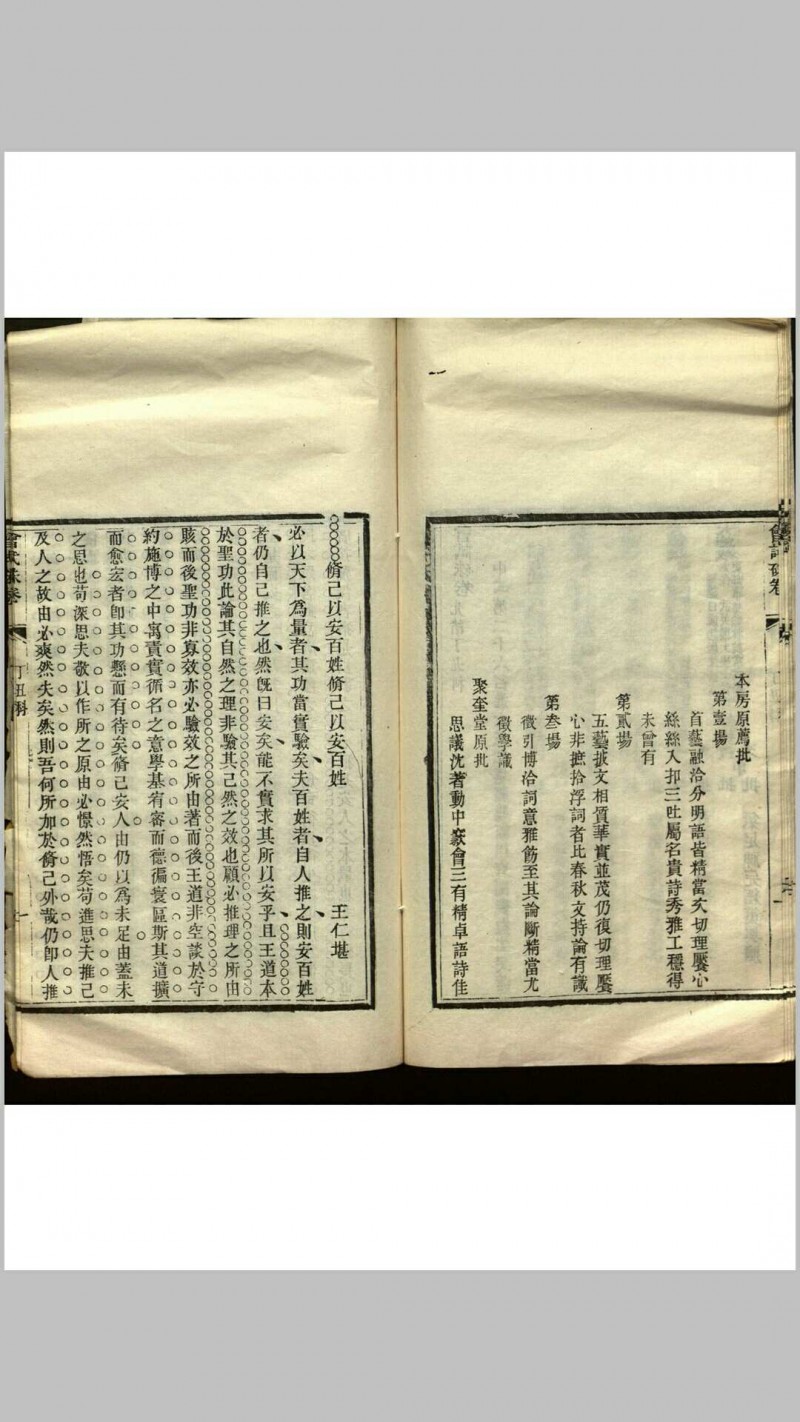 會試硃卷
本房原薦批
第壹場
首藝融洽分明語皆精當次切理饜心
絲絲入扣三吐屬名貴詩秀雅工穩得
未曾有
第貳場
五藝披文相質華實並茂仍復切理饜
心非摭拾浮詞者比春秋文持論有識
第叁場
徵引博洽詞意雅飭至其論斷精當尤
徵學識
聚奎堂原批
思議沈著動中窾會三有精卓語詩佳
脩己以安百姓脩己以安百姓
王仁堪
必以天下為量者其功當實驗矣夫百姓者自人推之則安百姓
者仍自己推之也然旣曰安矣能不實求其所以安乎且王道本
於聖功此論其自然之理非驗其已然之效也顧必推理之所由
賅而後聖功非寡效亦必驗效之所由著而後王道非空談於守
約施博之中寓責實循名之意學基宥密而德徧寰區斯其道擴
而愈宏者卽其功懸而有待矣脩己安人由仍以為未足由蓋未
之思也苟深思夫敬以作所之原由必憬然悟矣苟進思夫推己
及人之故由必爽然失矣然則吾何所加於脩己外哉仍卽人推
會試硃卷
丁丑科
一